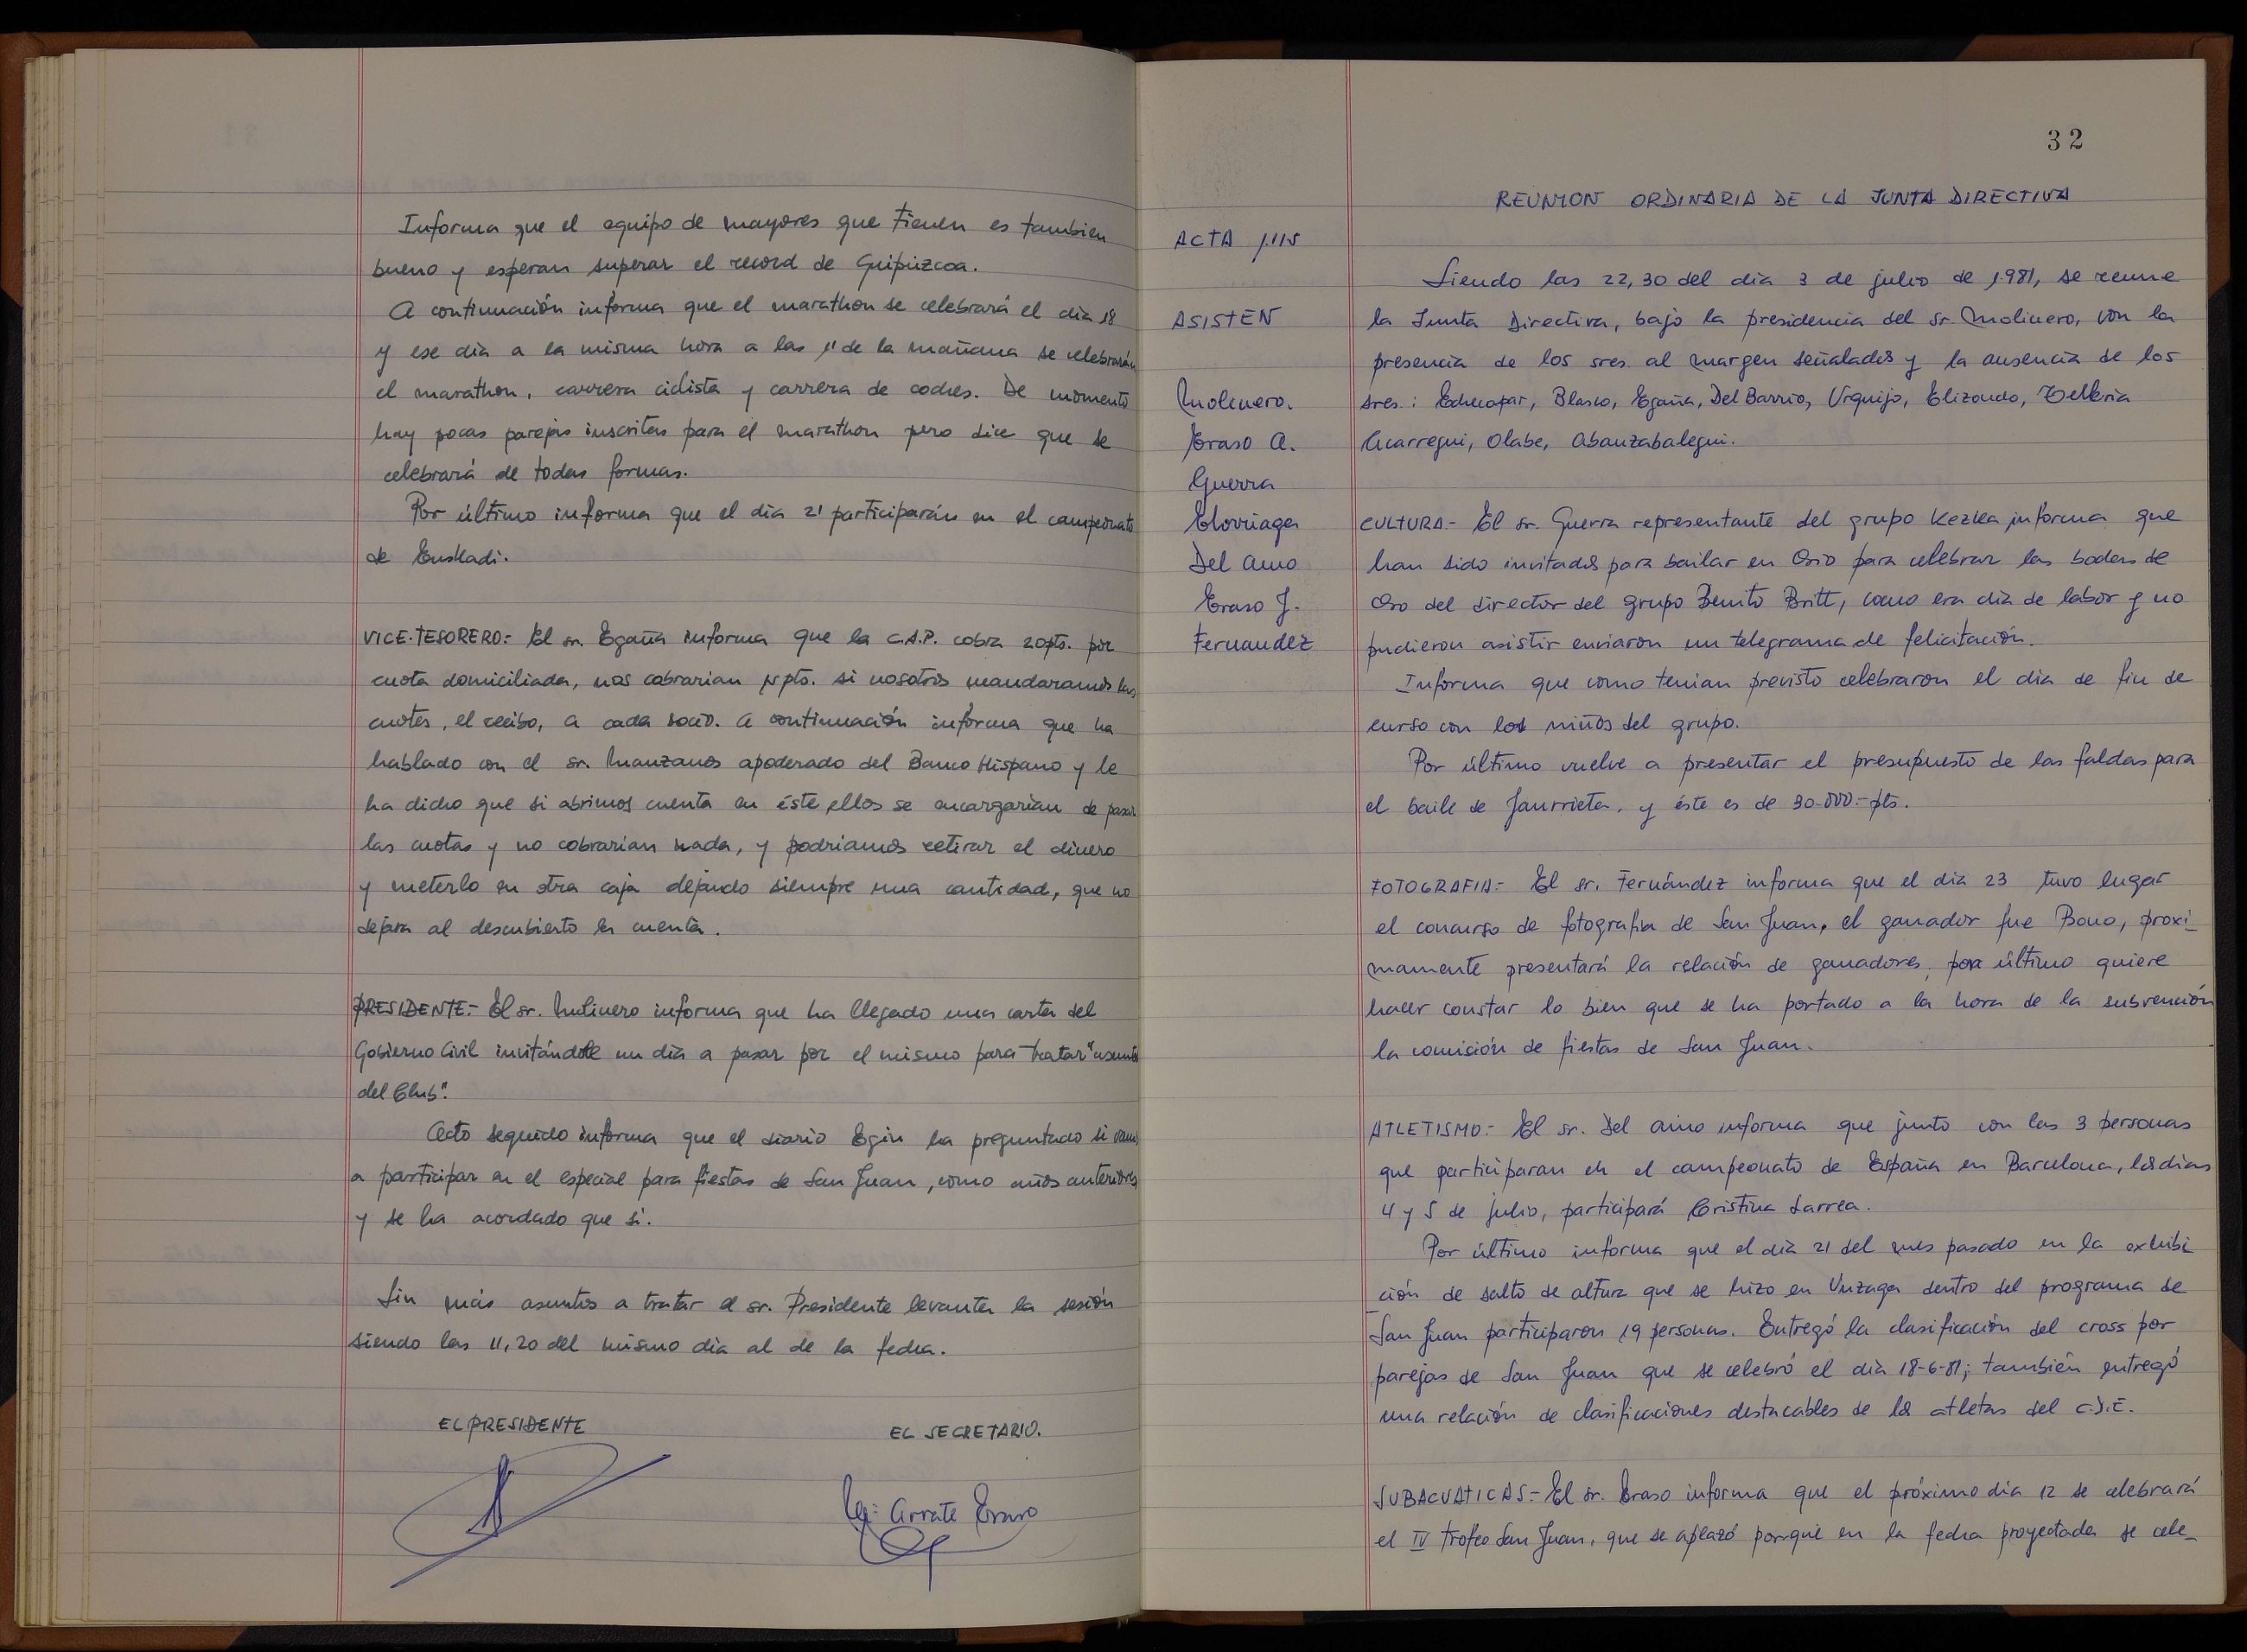 Informa que el equipo de mayores que tienen es tambien
bueno y esperan superar el record de Guipúzcoa.
A continuación informa que el marathon se celebrará el dia 18
y ese dia a la misma hora a las 11 de la mañana se celebrarán
el marathon, carrera ciclista y carrera de coches. De momento
hay pocas parejas inscritas para el marathon pero dice que se
celebrará de todas formas.
Por último informa que el dia 21 participarán en el campeonato
de Euskadi.
VICE-TESORERO:- El sr. Egaña informa que la C.A.P. cobra 20pts. por
cuota domiciliada, nos cobrarian 15 pts. si nosotros mandaramos las
cuotas, el recibo, a cada socio. A continuación informa que ha
hablado con el sr. Manzanos apoderado del Banco Hispano y le
ha dicho que si abrimos cuenta en éste, ellos se encargarian de pasar
las cuotas y no cobrarian nada, y podriamos retirar el dinero
y meterlo en otra caja dejando siempre una cantidad, que no
dejara al descubierto la cuenta.
PRESIDENTE:- El sr. Molinero informa que ha llegado una carta del
Gobierno Civil invitándole un dia a pasar por el mismo para tratar "asunto
del Club".
Acto seguido informa que el diario Egin ha preguntado si vamos
a participar en el especial para fiestas de San Juan, como años anteriores
y se ha acordado que si.
Sin más asuntos a tratar el sr. Presidente levanta la sesión
siendo las 11,20 del mismo dia al de la fecha.
EL PRESIDENTE
EL SECRETARIO.
Arrate Eraso
32
REUNION ORDINARIA DE LA JUNTA DIRECTIVA
ACTA 1.115
Siendo las 22,30 del dia 3 de julio de 1.981, se reune
ASISTEN
la Junta Directiva, bajo la presidencia del sr. Molinero, con la
presencia de los sres. al margen señalados y la ausencia de los
Molinero.
sres.: Echecopar, Blasco, Egaña, Del Barrio, Urquijo, Elizondo, Telleria
Eraso A.
Acarregui, Olabe, Abanzabalegui.
Guerra
Elorriaga
CULTURA:- El sr. Guerra representante del grupo Kezka, informa que
Del Amo
han sido invitados para bailar en Orio para celebrar las bodas de
Eraso J.
Oro del director del grupo Benito Britt, como era dia de labor y no
Fernandez
pudieron asistir enviaron un telegrama de felicitación.
Informa que como tenian previsto celebraron el dia de fin de
curso con los niños del grupo.
Por último vuelve a presentar el presupuesto de las faldas para
el baile de Jaurrieta, y éste es de 30.000.- pts.
FOTOGRAFIA:- El sr. Fernández informa que el dia 23 tuvo lugar
el concurso de fotografia de San Juan, el ganador fue Bono, proxi-
mamente presentará la relación de ganadores, por último quiere
hacer constar lo bien que se ha portado a la hora de la subvención
la comisión de fiestas de San Juan.
ATLETISMO:- El sr. Del Amo informa que junto con las 3 personas
que participaran en el campeonato de España en Barcelona, los dias
4 y 5 de julio, participará Cristina Larrea.
Por último informa que el dia 21 del mes pasado en la exhibi
ción de salto de altura que se hizo en Unzaga dentro del programa de
San Juan participaron 19 personas. Entregó la clasificación del cross por
parejas de San Juan que se celebró el dia 18-6-81; también entregó
una relación de clasificaciones destacables de los atletas del C.D.E.
SUBACUATICAS:- El sr. Eraso informa que el próximo dia 12 se celebrará
el IV trofeo San Juan, que se aplazó porque en la fecha proyectada se cele-